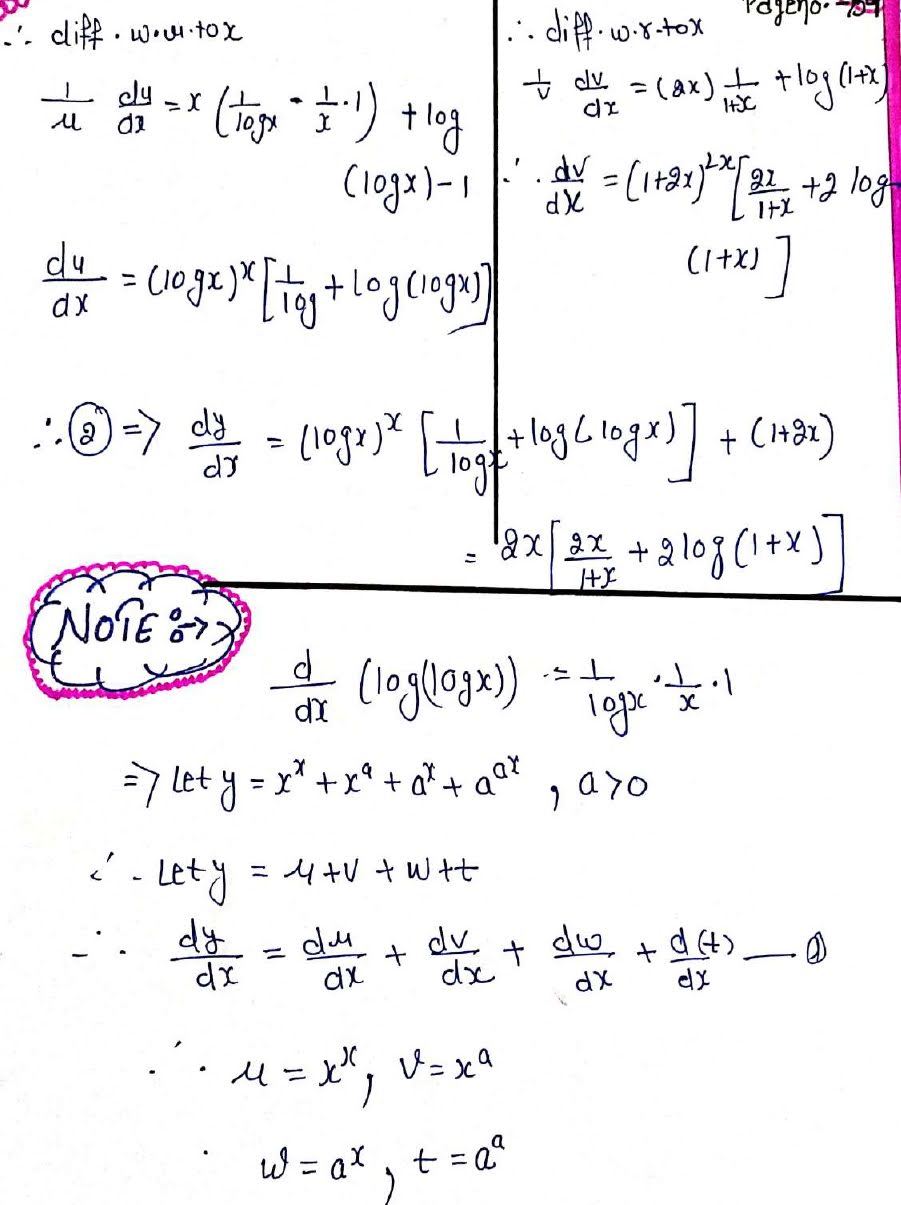 ∴ diff. w.r.to x
1/u du/dx = x (1/logx · 1/x · 1) + log
(logx) - 1
du/dx = (logx)^x [1/log + log(logx)]
Pageno.
∴ diff. w.r.to x
1/v dv/dx = (2x) 1/1+x + log(1+x)
∴ dv/dx = (1+2x)^2x [2x/1+x + 2 log
(1+x) ]
∴ ② => dy/dx = (logx)^x [1/logx + log(logx)] + (1+2x)
= 2x [2x/1+x + 2log(1+x)]
NOTE :->
d/dx (log(logx)) = 1/logx · 1/x · 1
=> Let y = x^x + x^a + a^x + a^ax , a>0
∴ Let y = u + v + w + t
∴ dy/dx = du/dx + dv/dx + dw/dx + d(t)/dx — ①
∴ u = x^x, v = x^a
· w = a^x, t = a^a